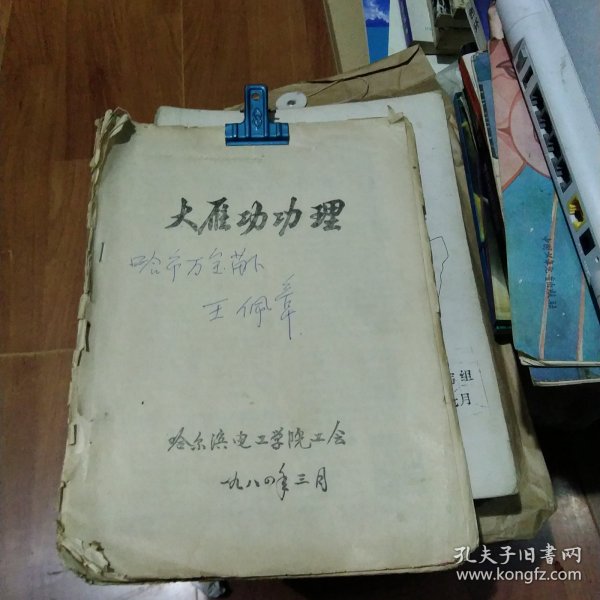 大雁功功理
哈市万宝
王佩章
哈尔滨电工学院工会
一九八四年三月
组
七月
孔夫子旧书网
www.kongfz.com